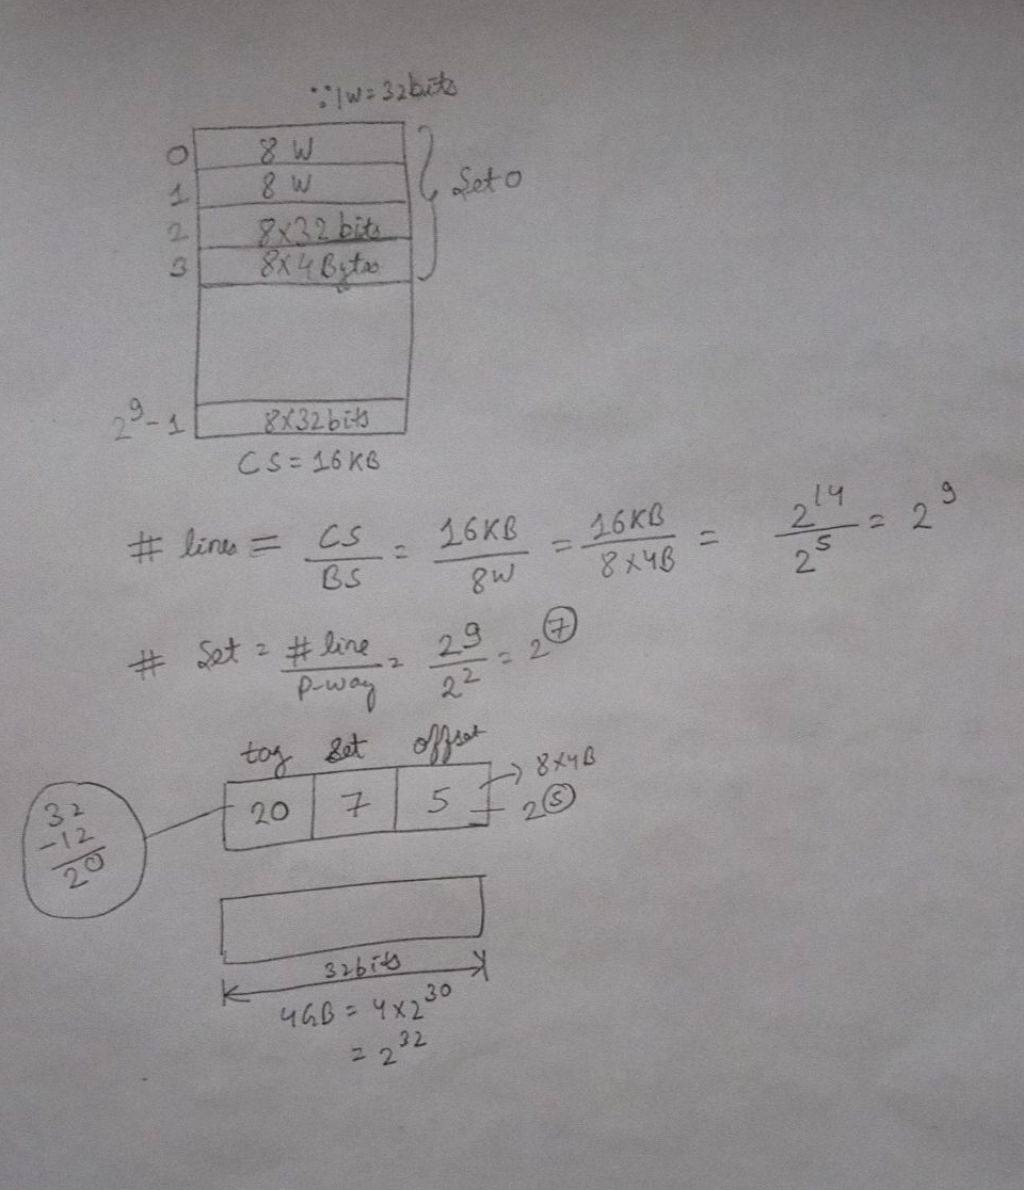 ∵ 1W = 32bits
0 8 W
1 8 W
Set 0
2 8×32 bits
3 8×4 Bytes
2^9-1 8×32bits
CS = 16KB
# lines = CS/BS = 16KB/8W = 16KB/8×4B = 2^14/2^5 = 2^9
# Set = # line/P-way = 2^9/2^2 = 2^7
tag set offset
20 7 5
→ 8×4B
2^5
32
-12
20
32bits
4GB = 4×2^30
= 2^32